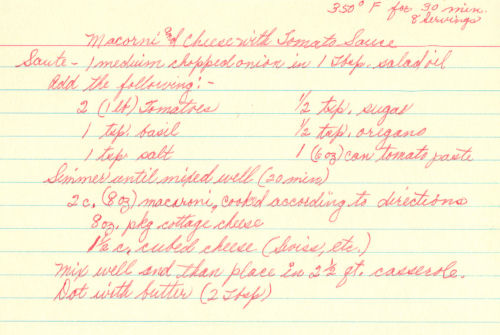 350° F for 30 min.
8 Servings
Macorni and Cheese with Tomato Sauce
Saute - 1 medium chopped onion in 1 Tbsp. salad oil
Add the following: -
2 (1 lb) Tomatoes 1/2 tsp. sugar
1 tsp. basil 1/2 tsp. oregano
1 tsp salt 1 (6 oz) can tomato paste
Simmer until mixed well (20 min)
2 c. (8 oz) macaroni, cooked according to directions
8 oz. pkg cottage cheese
1 1/2 c. cubed cheese (Swiss, etc.)
Mix well and than place in 2 1/2 qt. casserole.
Dot with butter (2 Tbsp)